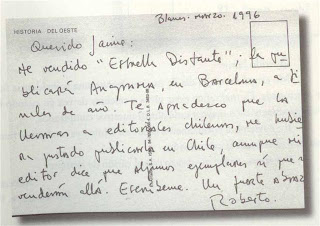 Blanes. MARZO. 1996
HISTORIA DEL OESTE
Querido Jaime:
He vendido "Estrella Distante"; la pu
blicará Anagrama, en Barcelona, a fi
nales de año. Te agradesco que la
llevaras a editoriales chilenos, me hubie
ra gustado publicarla en Chile, aunque mi
editor dice que algunos ejemplares si que se
venderán allá. Escríbeme. Un fuerte abrazo
Roberto.